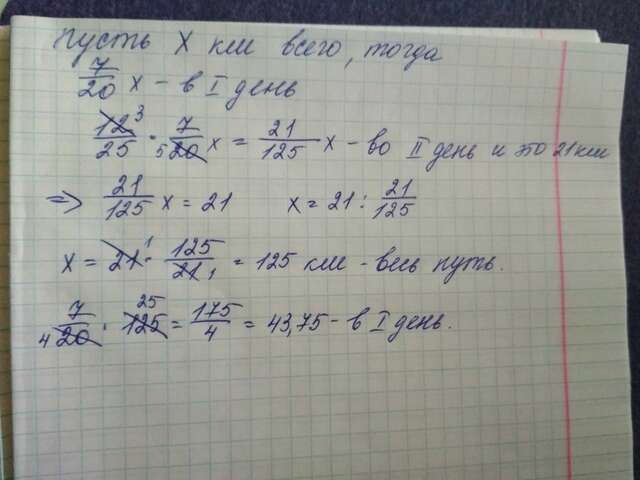 пусть x км всего, тогда
7/20 x – в I день
12/25 3 · 7/20 5 x = 21/125 x – во II день и это 21 км
=> 21/125 x = 21 x = 21 : 21/125
x = 21 1 · 125/21 1 = 125 км – весь путь.
7/20 4 · 125 25 = 175/4 = 43,75 – в I день.